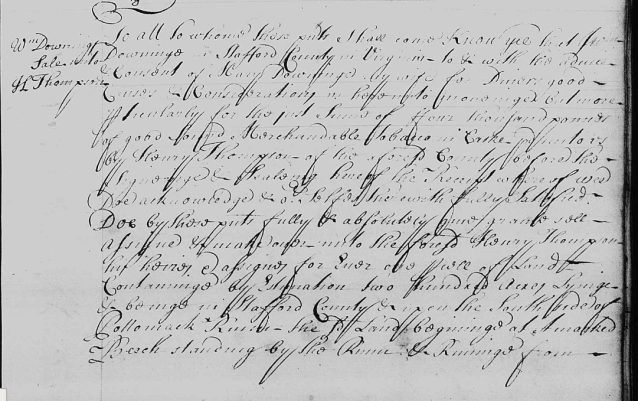 Wm Downing
Sale unto
H Thompson
To all to whome these psts shall come Know yee that I Wm
Downinge in Stafford County in Virginia to & with the advice
Consent of Mary Downinge my wife for Divers good
Causes & Considerations me hereunto moveinge but more
pticularly for the pst Sume of ffour thousand pounes
of good sound Merchandable Tobacco in Caske pd unto us
by Henry Thompson of the aforesd County before the
Signeinge & Sealeing hereof the Receipt whereof wee
Doe acknowledge & orselfes therewith fully satisfied
Doe by these psts fully & absolutely give grante sell
assigne & make over unto the foresd Henry Thompson
his heires & assignes for Ever one psell of Land
Containinge by Estimation two hundred Acres Lyinge
& beinge in Stafford County & upon the South side of
Pottomack River the sd Land beginninge at a marked
Beech standing by the Runn & Runinge from